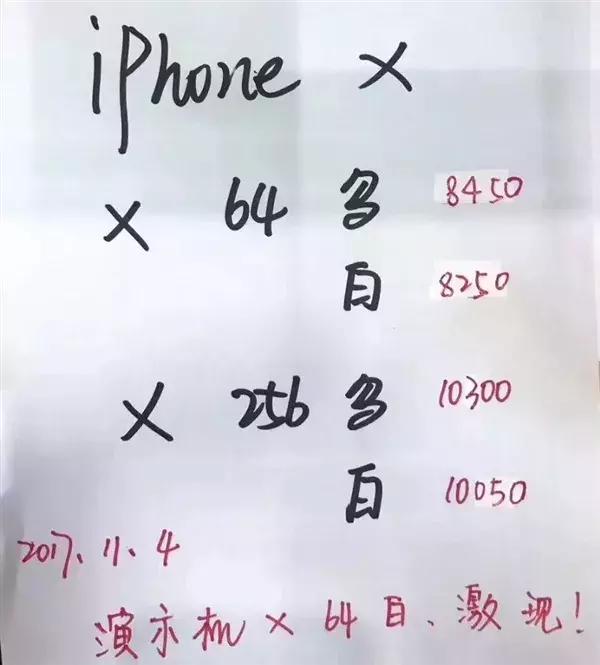 iPhone X
X 64 多 8450
白 8250
X 256 多 10300
白 10050
2017.11.4
演示机 X 64 白、激现!